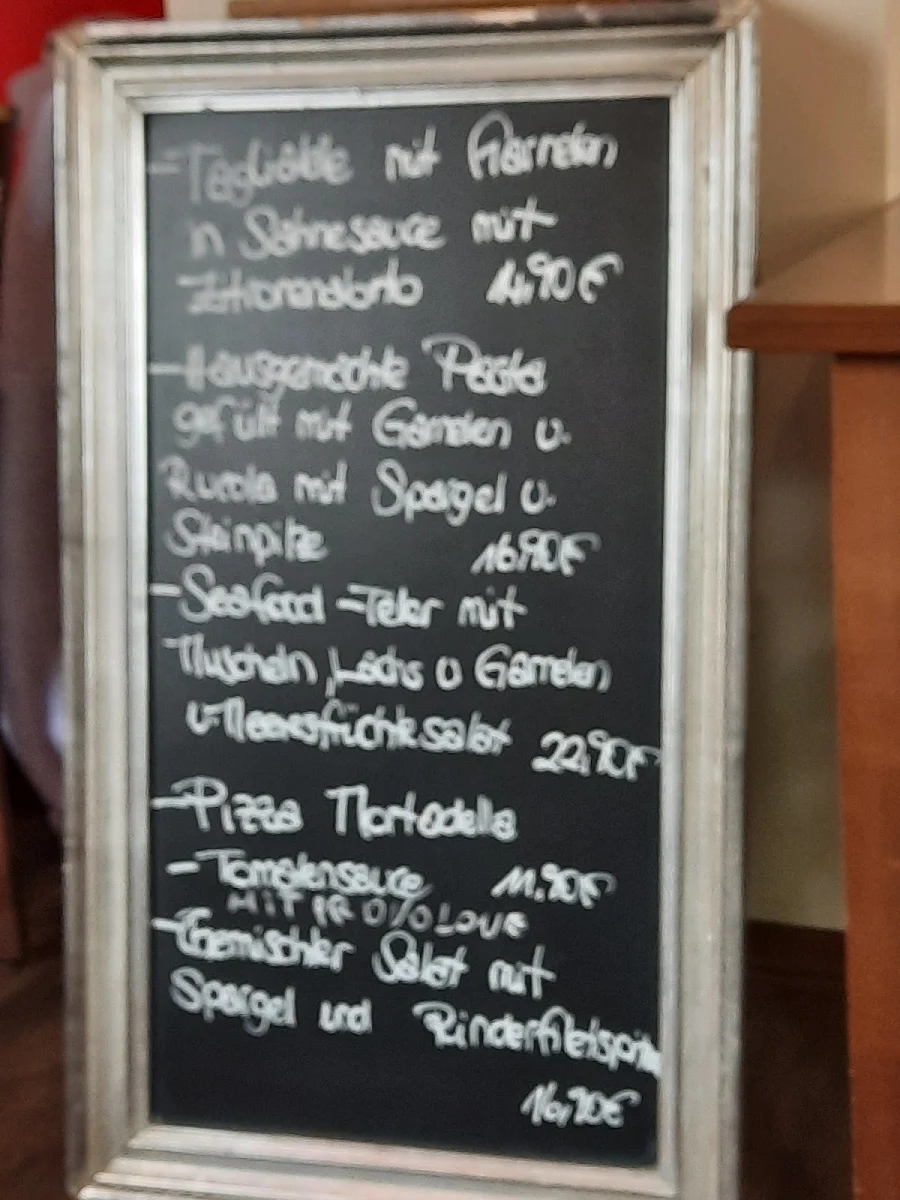 - Tagliatelle mit Garnelen
in Sahnesauce mit
14,90€
- Hausgemachte Pasta
gefüllt mit Garnelen u.
Rucola mit Spargel u.
Steinpilze 16,90€
- Seafood - Teller mit
Muscheln, Lachs u Garnelen
u. Meeresfrüchtesalat 22,90€
- Pizza Mortadella
- Tomatensauce 11,90€
MIT 100% LOVE
- Gemischter Salat mit
Spargel und Rinderfiletspitze
16,90€